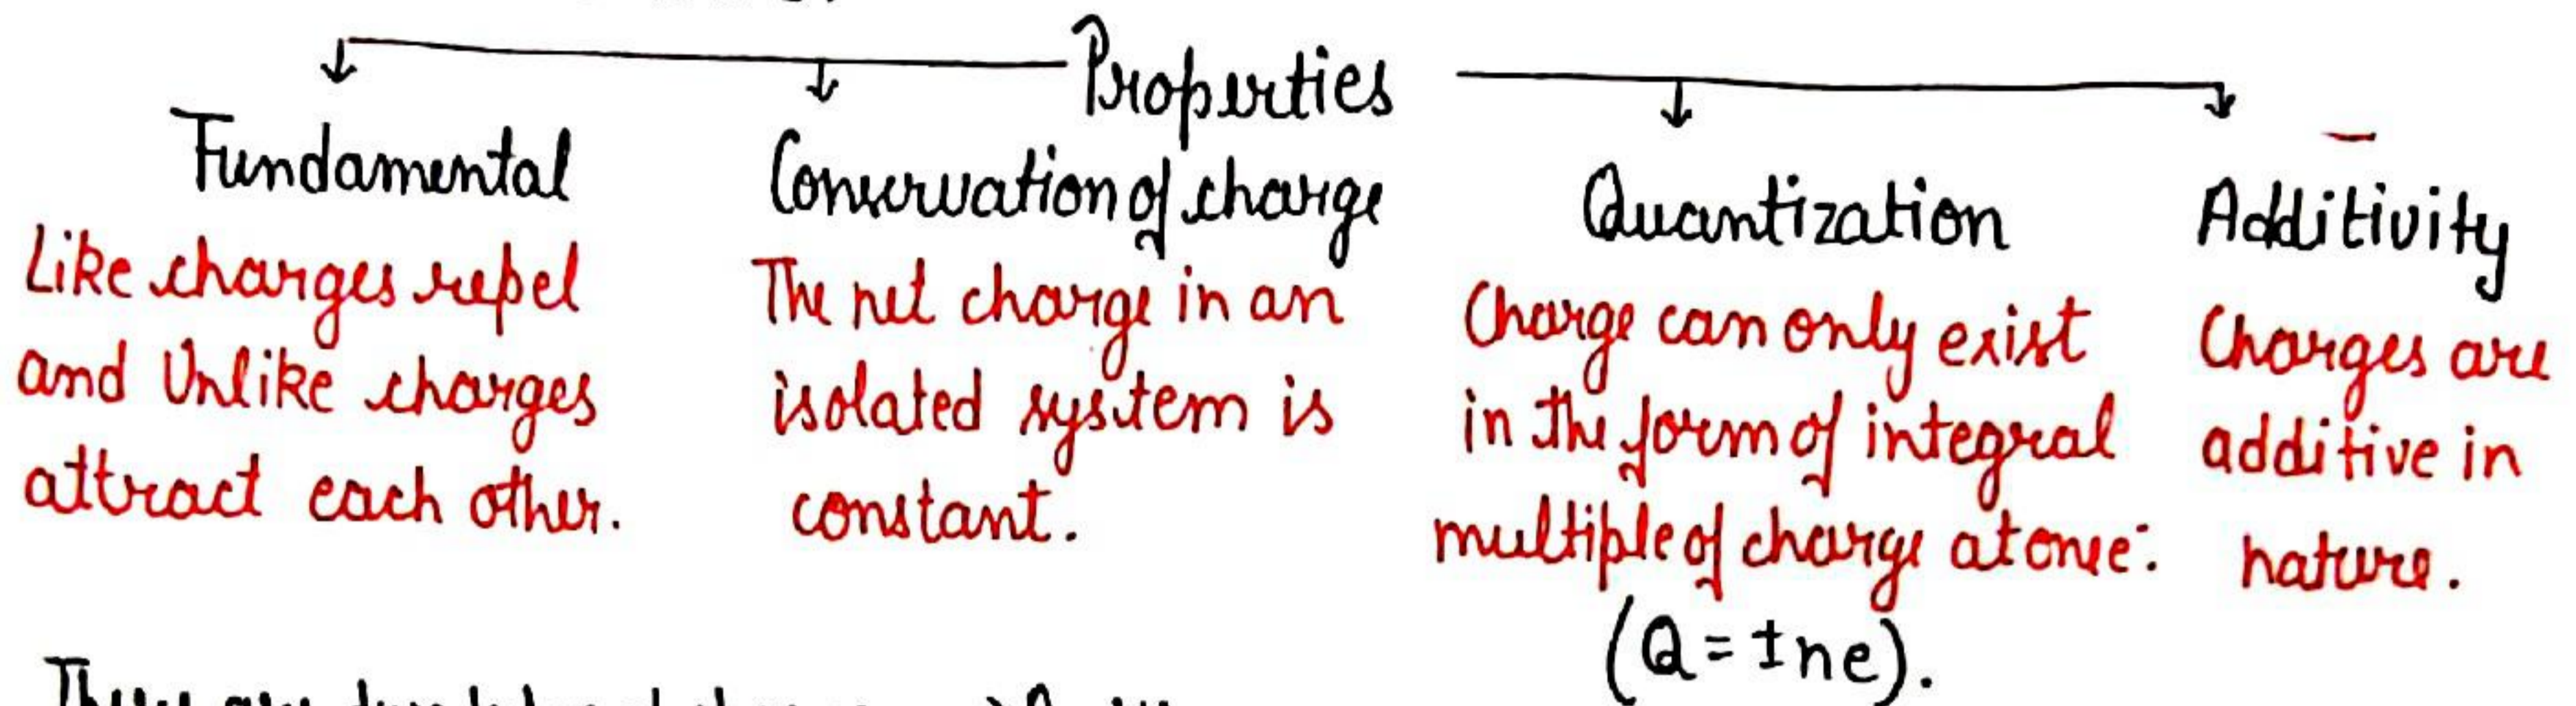 Properties
Fundamental
Like charges repel
and Unlike charges
attract each other.
Conservation of charge
The net charge in an
isolated system is
constant.
Quantization
Charge can only exist
in the form of integral
multiple of charge at one:
(Q = ±ne).
Additivity
Charges are
additive in
nature.